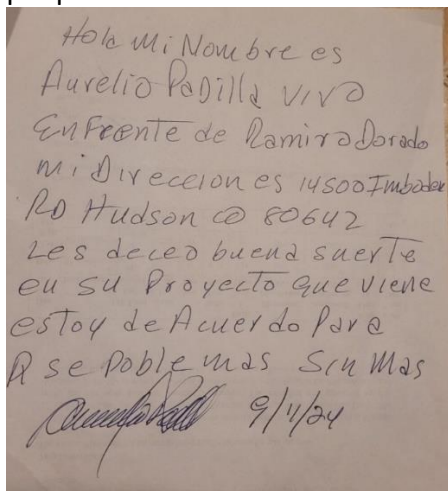 Hola Mi Nombre es
Aurelio Padilla vivo
En Frente de Ramiro Dorado
mi Direccion es 14500 Imboden
RD Hudson CO 80642
Les deceo buena suerte
en su Proyecto que viene
estoy de Acuerdo Para
Q se Poble mas Sin Mas
9/11/24